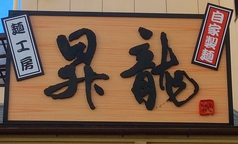 麺工房
昇龍
自家製麺